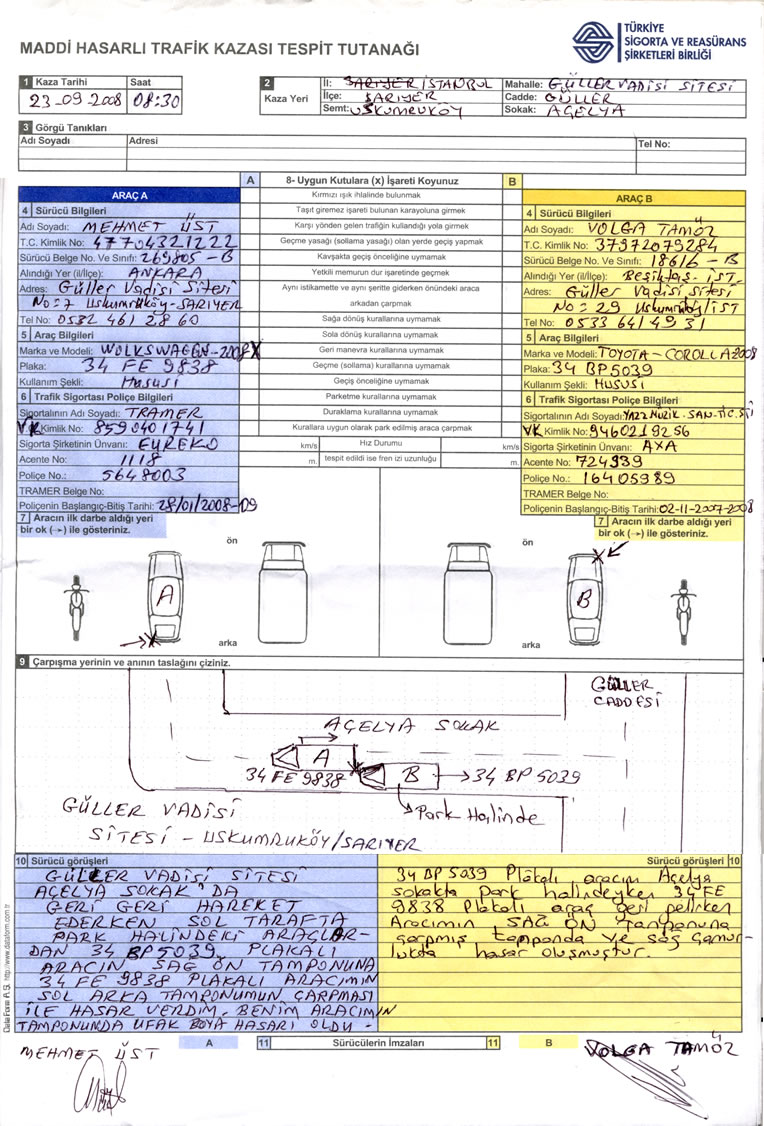 MADDİ HASARLI TRAFİK KAZASI TESPİT TUTANAĞI
TÜRKİYE
SİGORTA VE REASÜRANS
ŞİRKETLERİ BİRLİĞİ
1 Kaza Tarihi Saat
23-09-2008 08:30
2 Kaza Yeri
İl: SARIYER/İSTANBUL
İlçe: SARIYER
Semt: USKUMRUKÖY
Mahalle: GÜLLER VADİSİ SİTESİ
Cadde: GÜLLER
Sokak: AÇELYA
3 Görgü Tanıkları
Adı Soyadı Adresi Tel No:
A 8- Uygun Kutulara (x) İşareti Koyunuz B
ARAÇ A
4 Sürücü Bilgileri
Adı Soyadı: MEHMET ÜST
T.C. Kimlik No: 47704321222
Sürücü Belge No. Ve Sınıfı: 269805-B
Alındığı Yer (il/ilçe): ANKARA
Adres: Güller Vadisi Sitesi
No=7 Uskumruköy-SARIYER
Tel No: 0532 461 28 60
5 Araç Bilgileri
Marka ve Modeli: WOLKSWAGEN-2008 X
Plaka: 34 FE 9838
Kullanım Şekli: HUSUSİ
6 Trafik Sigortası Poliçe Bilgileri
Sigortalının Adı Soyadı: TRAMER
VK Kimlik No: 8590401741
Sigorta Şirketinin Ünvanı: EUREKO
Acente No: 1118
Poliçe No.: 5648003
TRAMER Belge No:
Poliçenin Başlangıç-Bitiş Tarihi: 28/01/2008-09
7 Aracın ilk darbe aldığı yeri
bir ok (→) ile gösteriniz.
Kırmızı ışık ihlalinde bulunmak
Taşıt giremez işareti bulunan karayoluna girmek
Karşı yönden gelen trafiğin kullandığı yola girmek
Geçme yasağı (sollama yasağı) olan yerde geçiş yapmak
Kavşakta geçiş önceliğine uymamak
Yetkili memurun dur işaretinde geçmek
Aynı istikamette ve aynı şeritte giderken önündeki araca
arkadan çarpmak
Sağa dönüş kurallarına uymamak
Sola dönüş kurallarına uymamak
Geri manevra kurallarına uymamak
Geçme (sollama) kurallarına uymamak
Geçiş önceliğine uymamak
Parketme kurallarına uymamak
Duraklama kurallarına uymamak
Kurallara uygun olarak park edilmiş araca çarpmak
km/s Hız Durumu km/s
m. tespit edildi ise fren izi uzunluğu m.
ARAÇ B
4 Sürücü Bilgileri
Adı Soyadı: VOLGA TAMÖZ
T.C. Kimlik No: 37972079284
Sürücü Belge No. Ve Sınıfı: 18616-B
Alındığı Yer (il/ilçe): Beşiktaş-İST
Adres: Güller Vadisi sitesi
No=29 Uskumruköy/İST
Tel No: 0533 641 49 31
5 Araç Bilgileri
Marka ve Modeli: TOYOTA-COROLLA 2008
Plaka: 34 BP 5039
Kullanım Şekli: HUSUSİ
6 Trafik Sigortası Poliçe Bilgileri
Sigortalının Adı Soyadı: MÜZİK-SAN-TİC.
VK Kimlik No: 9460219256
Sigorta Şirketinin Ünvanı: AXA
Acente No: 724939
Poliçe No: 16405989
TRAMER Belge No:
Poliçenin Başlangıç-Bitiş Tarihi: 02-11-2007-2008
7 Aracın ilk darbe aldığı yeri
bir ok (→) ile gösteriniz.
ön ön
A B
arka arka
9 Çarpışma yerinin ve anının taslağını çiziniz.
GÜLLER
CADDESİ
AÇELYA SOKAK
A
34 FE 9838 B 34 BP 5039
Park Halinde
GÜLLER VADİSİ
SİTESİ - USKUMRUKÖY/SARIYER
10 Sürücü görüşleri
GÜLLER VADİSİ SİTESİ
AÇELYA SOKAK'DA
GERİ GERİ HAREKET
EDERKEN SOL TARAFTA
PARK HALİNDEKİ ARAÇLAR-
DAN 34 BP 5039 PLAKALI
ARACIN SAĞ ÖN TAMPONUNA
34 FE 9838 PLAKALI ARACIMIN
SOL ARKA TAMPONUMUN ÇARPMASI
İLE HASAR VERDİM. BENİM ARACIMIN
TAMPONUNDA UFAK BOYA HASARI OLDU-
Sürücü görüşleri 10
34 BP 5039 Plakalı aracım Açelya
sokakta Park halindeyken 34 FE
9838 Plakalı araç geri gelirken
Aracımın SAĞ ÖN tamponuna
çarpmış tamponda ve sağ çamur-
lukta hasar oluşmuştur.
A 11 Sürücülerin İmzaları 11 B
MEHMET ÜST VOLGA TAMÖZ
Data Form A.Ş. http://www.dataform.com.tr